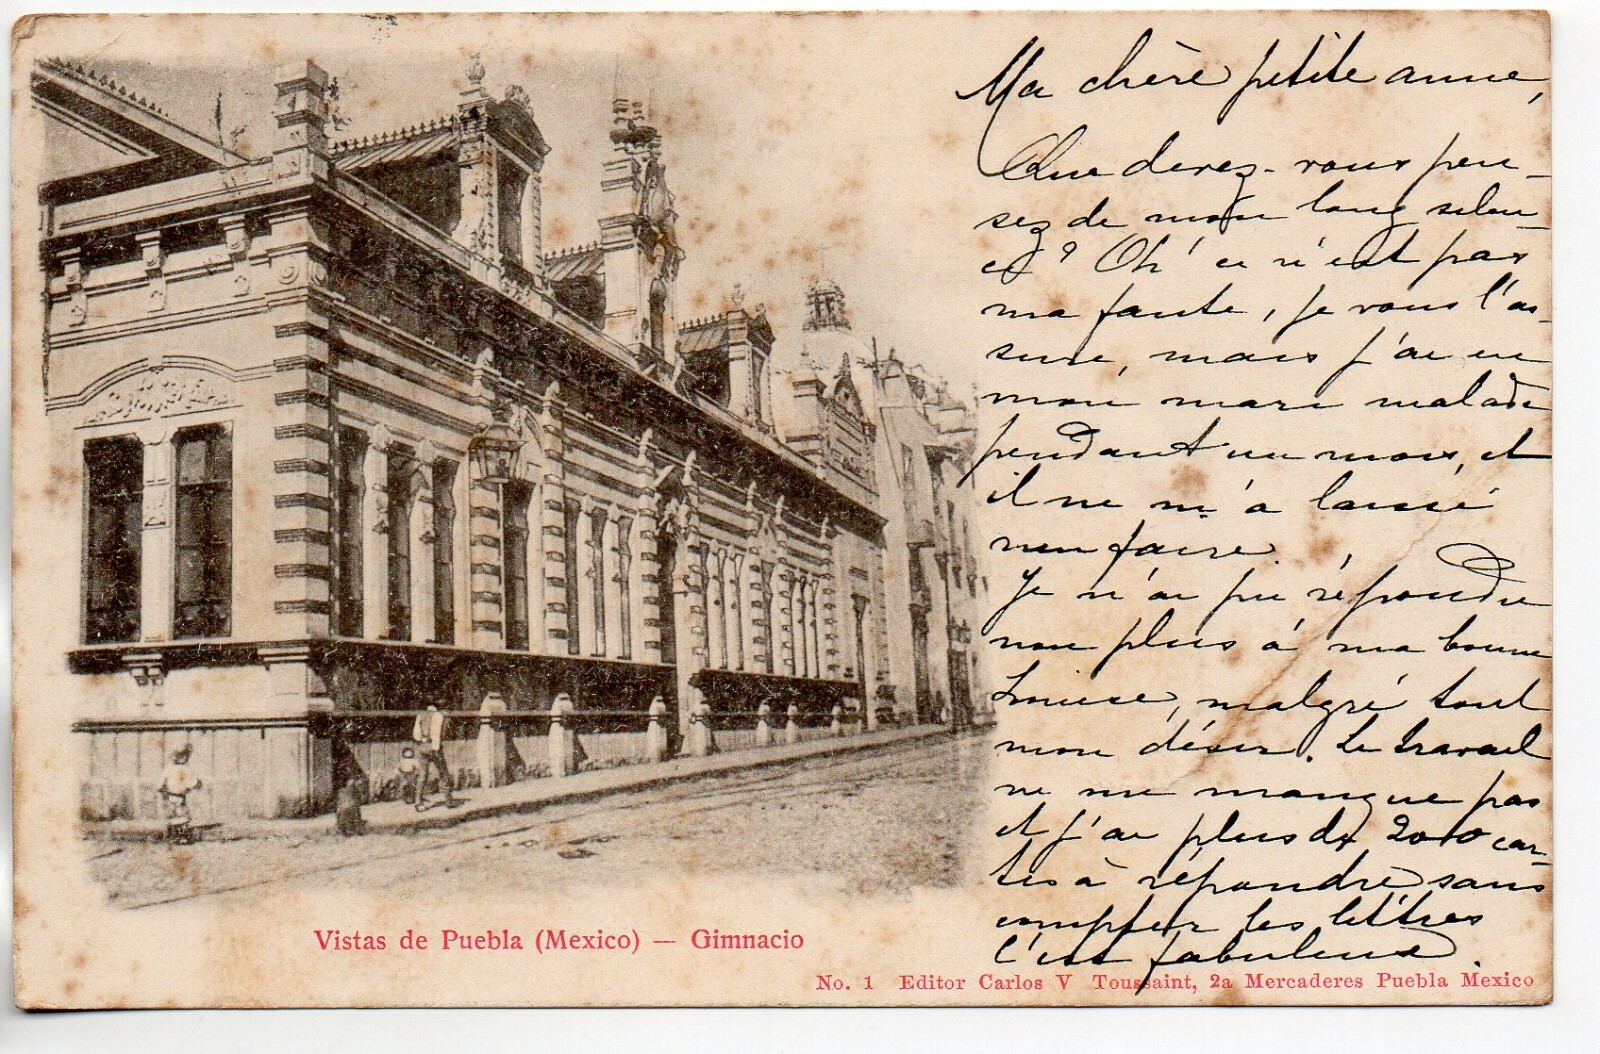 Ma chère petite amie,
Que devez-vous pen-
sez de mon long silen-
ce? Oh! ce n'est pas
ma faute, je vous l'as-
sure, mais j'ai eu
mon mari malade
pendant un mois, et
il ne m'a laissé
rien faire.
Je n'ai pu répondre
non plus à ma bonne
Louise, malgré tout
mon désir. Le travail
ne me manque pas
et j'ai plus de 200 car-
tes à répondre sans
compter les lettres
c'est fabuleux.
Vistas de Puebla (Mexico) — Gimnacio
No. 1 Editor Carlos V Toussaint, 2a Mercaderes Puebla Mexico